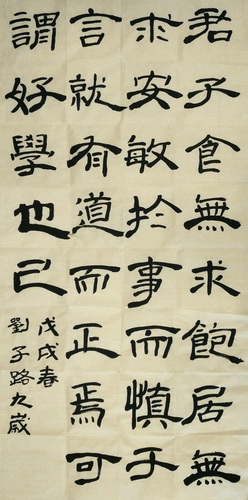 君子食無求飽居無
求安敏於事而慎于
言就有道而正焉可
謂好學也已
戊戌春
劉子路九歲